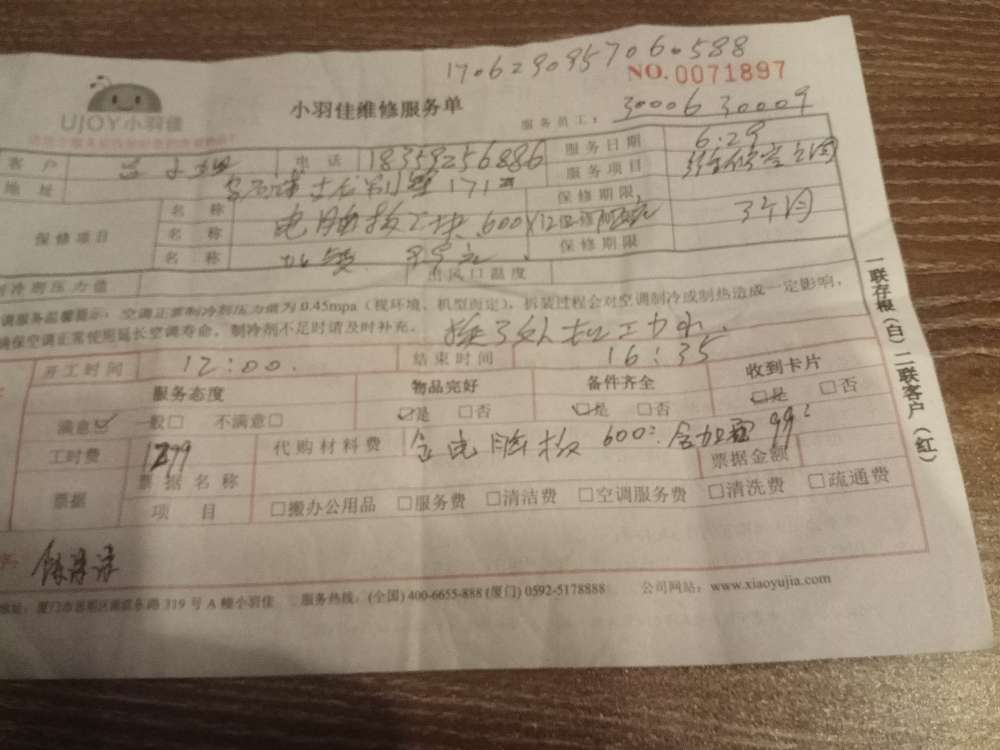 1706290957060588
NO.0071897
UJOY小羽佳
小羽佳维修服务单
服务员工: 30006 30009
客户 电话 18359256886 服务日期 6.29
地址 171 服务项目 维修空调
保修项目 名称 保修期限
名称 电脑板 600 3个月
名称 加氟 保修期限
制冷剂压力值 出风口温度
调服务温馨提示:空调正常制冷剂压力值为0.45mpa(视环境、机型而定),拆装过程会对空调制冷或制热造成一定影响,
确保空调正常使用延长空调寿命,制冷剂不足时请及时补充。
开工时间 12:00. 结束时间 16:35
服务态度 物品完好 备件齐全 收到卡片
满意☑ 一般□ 不满意□ ☑是 □否 ☑是 □否 ☑是 □否
工时费 1299 代购材料费 含电脑板 600 99
票据 票据名称 票据金额
项目 □搬办公用品 □服务费 □清洁费 □空调服务费 □清洗费 □疏通费
一联存根(白)二联客户(红)
319号A幢小羽佳 服务热线:(全国)400-6655-888(厦门)0592-5178888 公司网站:www.xiaoyujia.com